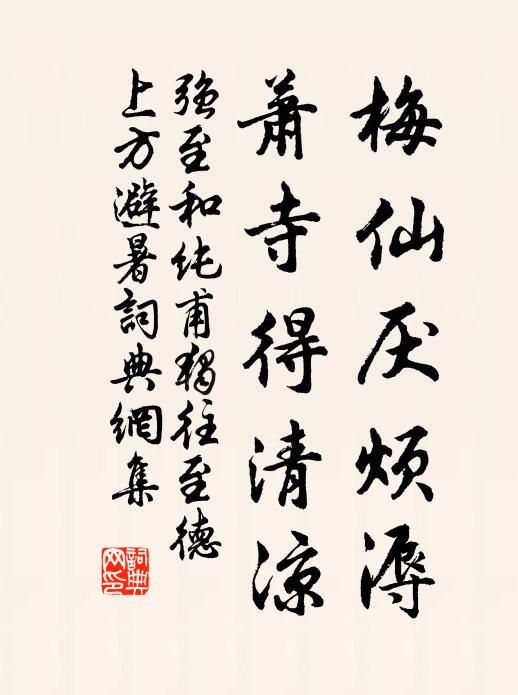 梅仙厌烦溽
萧寺得清凉
强至和纯甫独往至德
上方避暑詞典網集
詞典网印